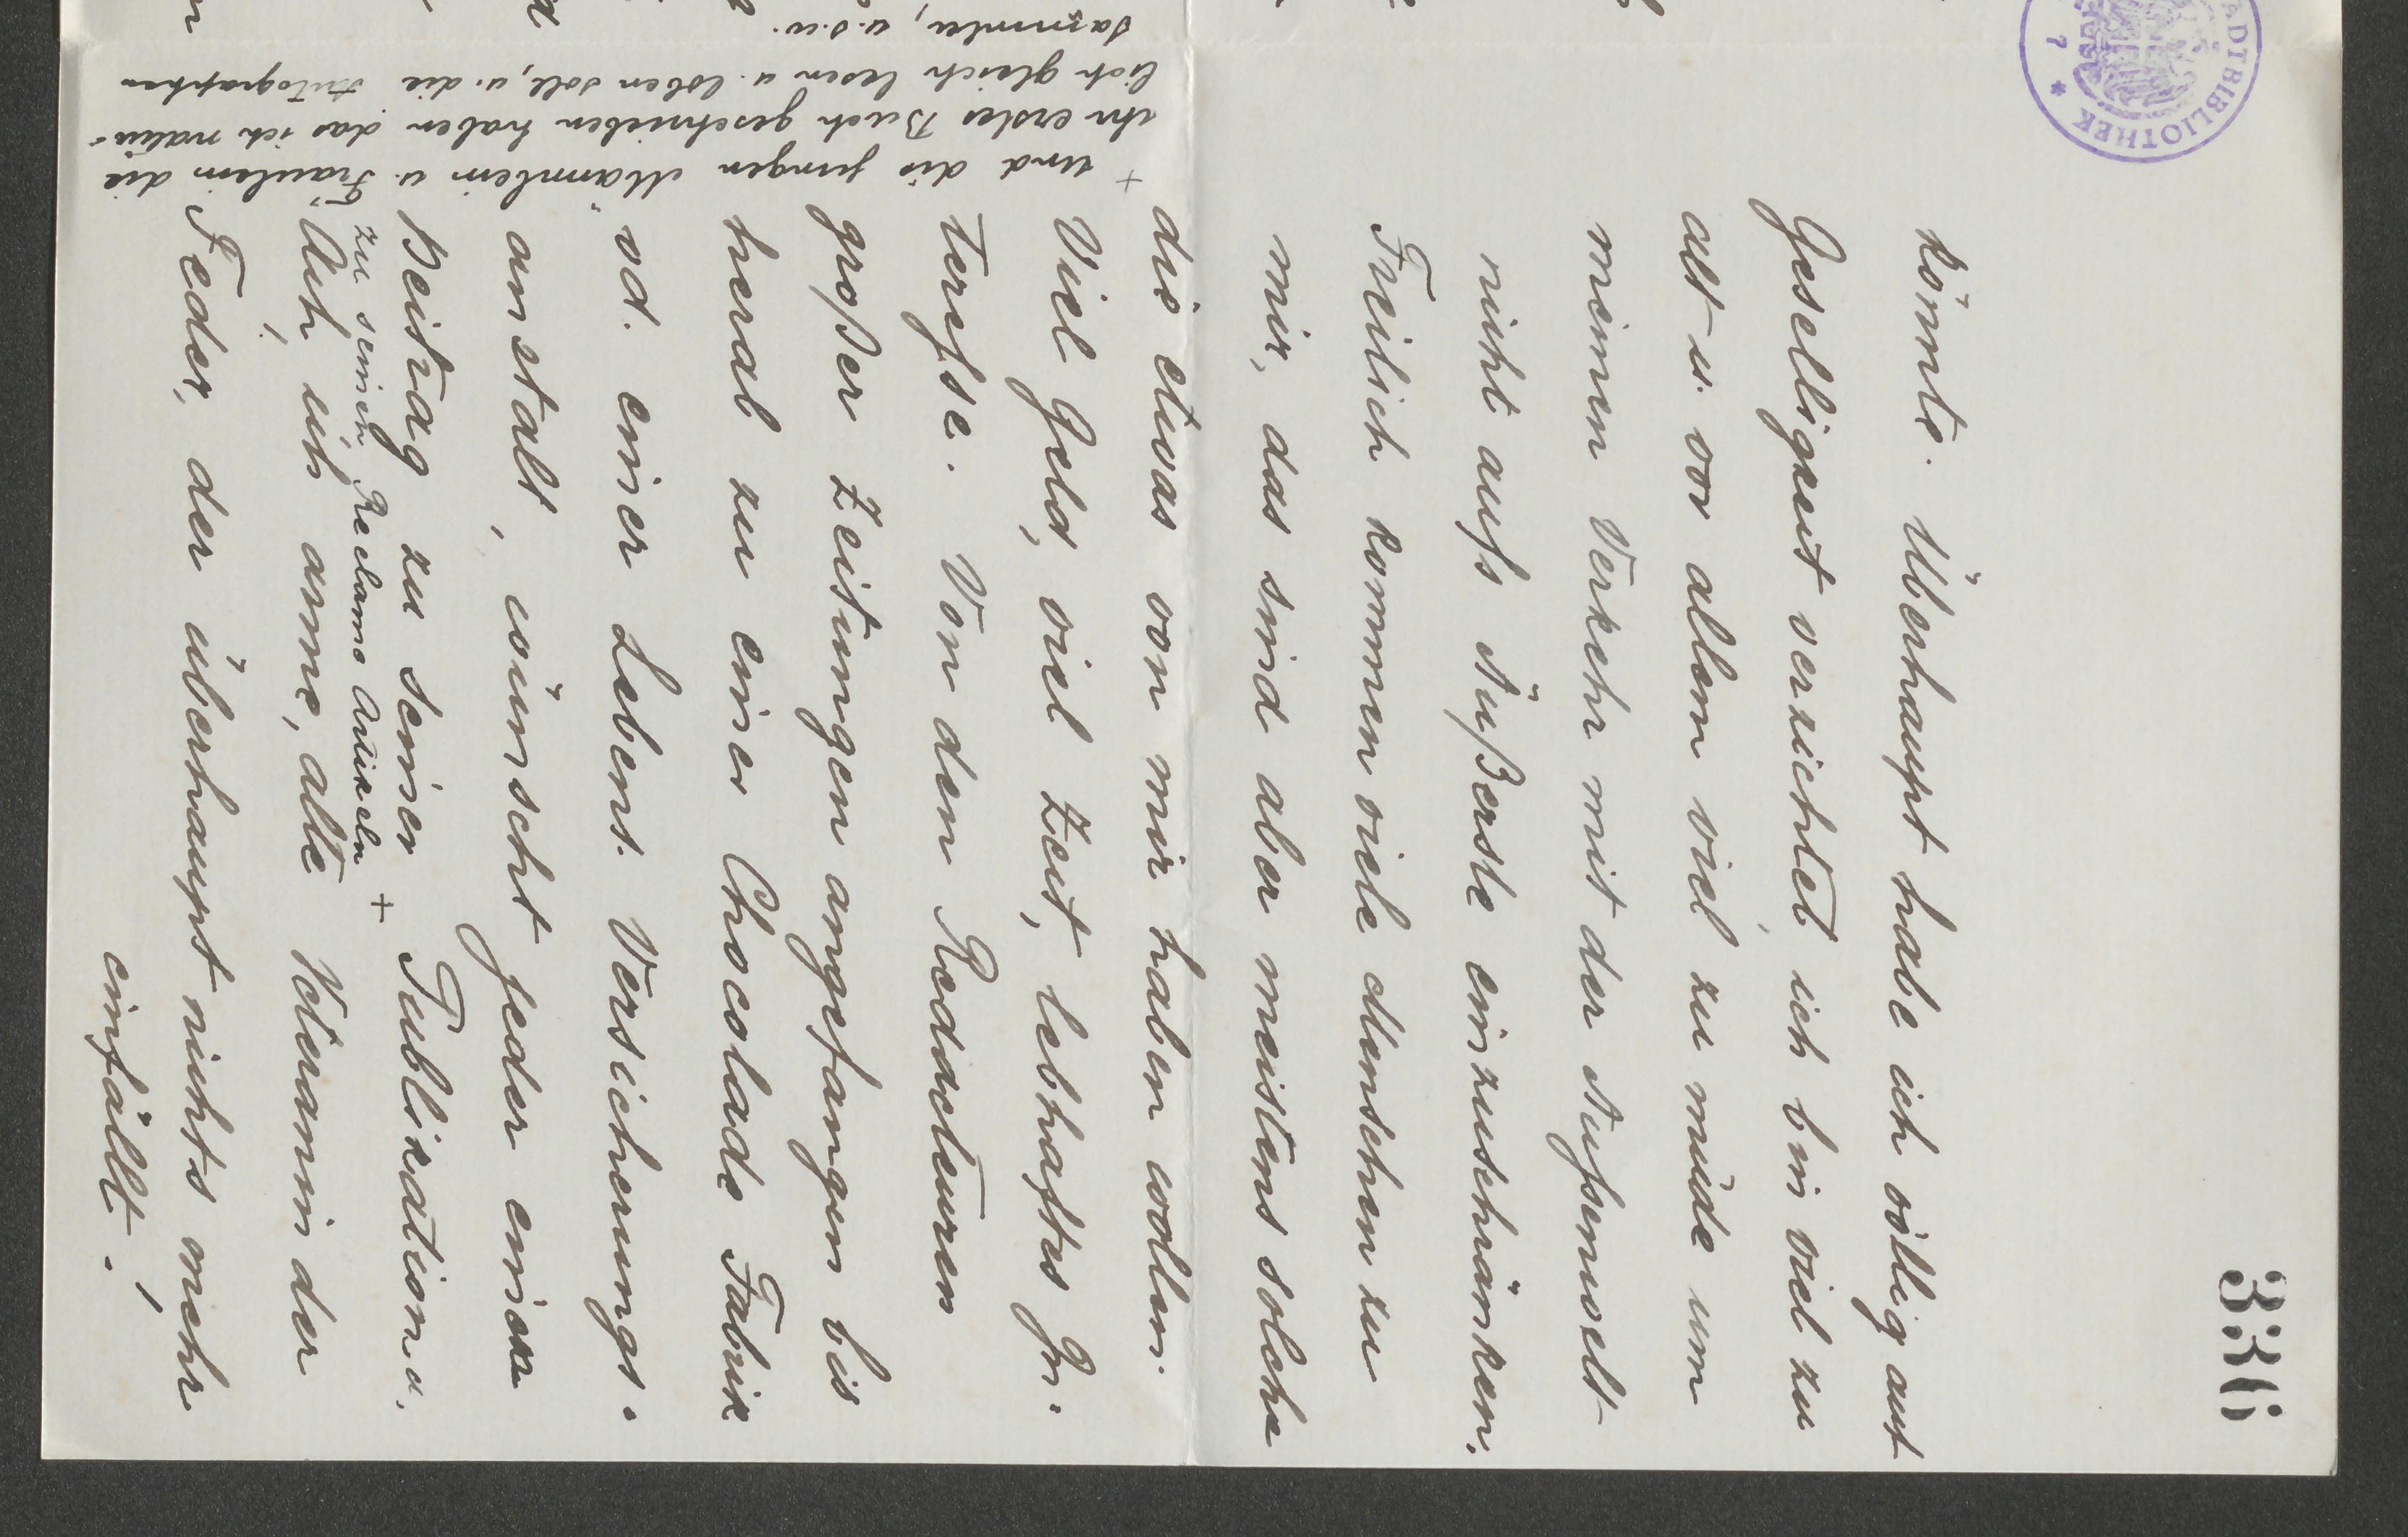 könnte. Überhaupt habe ich völlig auf
Geselligkeit verzichtet, ich bin viel zu
alt u. vor allem viel zu müde um
meinen Verkehr mit der Außenwelt
nicht aufs Äußerste einzuschränken.
Freilich kommen viele Menschen zu
mir, das sind aber meistens solche
die etwas von mir haben wollen.
Viel Geld, viel Zeit, lebhaftes In-
teresse. Von den Reddacteuren
großer Zeitungen angefangen bis
herab zu einer Chocolade Fabrik
od. einer Lebens. Versicherungs-
anstalt, wünscht jeder einen
Beitrag zu seiner Publikation u.
zu seinen Reclame Artikeln +
Ach, ich arme, alte Veteranin der
Feder, der überhaupt nichts mehr
einfällt.!
+ Und die jungen Männlein u. Fräulein die
ihr erstes Buch geschrieben haben das ich natür-
lich gleich lesen u. loben soll, u. die Autographen
sammler, u.s.w.
ADTBIBLIOTHEK
* 7